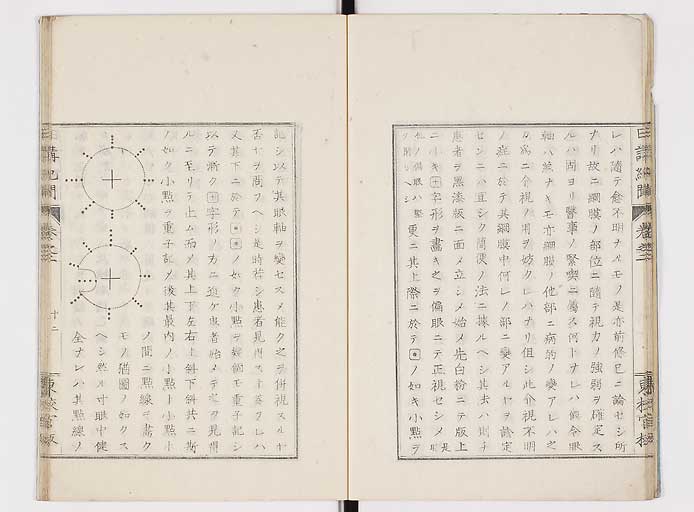 レハ隨テ愈不明ナルモノ是亦前條已ニ論セシ所
ナリ故ニ網膜ノ部位ニ隨テ視力ノ強弱ヲ確定ス
ルハ固ヨリ醫事ノ緊喫ニ屬ス何トナレハ假令眼
軸ハ然ナキモ亦網膜ノ他部ニ病的ノ變アレハ之
カ為ニ介視ノ用ヲ妨クレハナリ但シ此介視不明
ノ症ニ於テ其網膜中何レノ部ニ變アルヤヲ識定
センニハ宜シク簡便ノ法ニ據ルヘシ其法ハ則チ
患者ヲ黑漆板ニ面メ立シメ始メ先白粉ニテ版上
ニ小キ十字形ヲ畫キ之ヲ偏眼ニテ正視セシメ
更ニ其上際ニ於テ ノ如キ小點ヲ
記シ以テ其眼軸ヲ變セスメ能ク之ヲ併視スルヤ
否ヤヲ問フヘシ是時若シ患者見得スト答フレハ
又其下ニ於テ ノ如ク小點ヲ幾個モ重子記シ
以テ漸ク十字形ノ方ニ近ケ患者始メテ之ヲ見得
ルニ至リテ止ム而メ其上下左右上斜下斜共ニ斯
ノ如ク小點ヲ重子記メ後其最内ノ小點ト小點ト
ノ間ニ點線ヲ畫ク
モノ猶圖ノ如クス
ヘシ然ル寸眼中健
全ナレハ其點線ノ
日講紀聞
卷
十二
東校官版